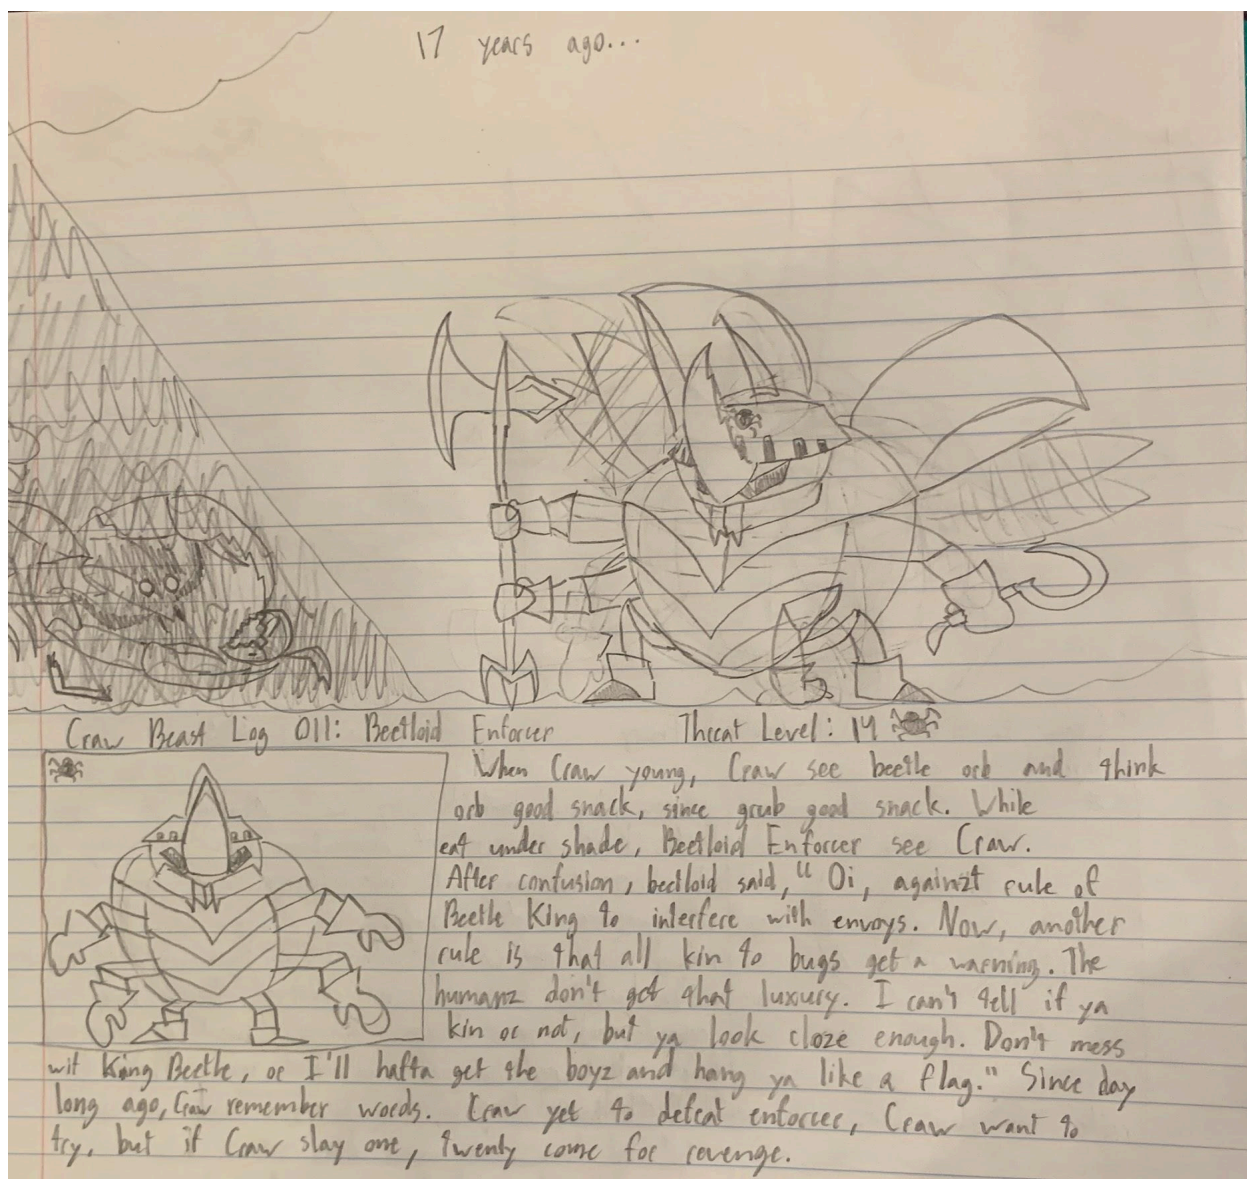 17 years ago...
Craw Beast Log 011: Beetloid Enforcer Threat Level: 14
When Craw young, Craw see beetle orb and think
orb good snack, since grub good snack. While
eat under shade, Beetloid Enforcer see Craw.
After confusion, beetloid said, "Oi, againzt rule of
Beetle King to interfere with envoys. Now, another
rule is that all kin to bugs get a warning. The
humanz don't get that luxury. I can't tell if ya
kin or not, but ya look cloze enough. Don't mess
wit King Beetle, or I'll hafta get the boyz and hang ya like a flag." Since day
long ago, Craw remember words. Craw yet to defeat enforcer, Craw want to
try, but if Craw slay one, twenty come for revenge.